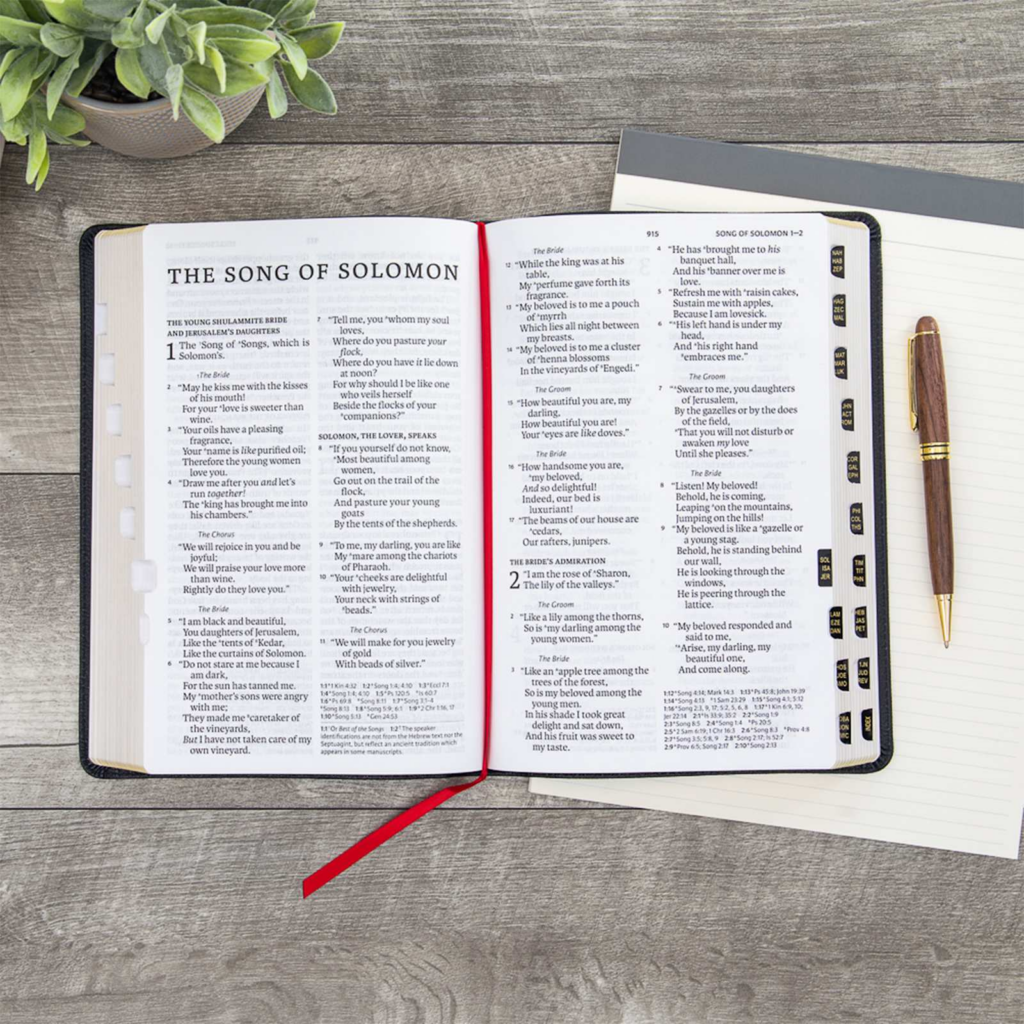 THE SONG OF SOLOMON
THE YOUNG SHULAMMITE BRIDE
AND JERUSALEM'S DAUGHTERS
1 The Song of Songs, which is
Solomon's.
The Bride
2 "May he kiss me with the kisses
of his mouth!
For your love is sweeter than
wine.
3 "Your oils have a pleasing
fragrance,
Your name is like purified oil;
Therefore the young women
love you.
4 "Draw me after you and let's
run together!
The king has brought me into
his chambers."
The Chorus
"We will rejoice in you and be
joyful;
We will praise your love more
than wine.
Rightly do they love you."
The Bride
5 "I am black and beautiful,
You daughters of Jerusalem,
Like the tents of Kedar,
Like the curtains of Solomon.
6 "Do not stare at me because I
am dark,
For the sun has tanned me.
My mother's sons were angry
with me;
They made me caretaker of
the vineyards,
But I have not taken care of my
own vineyard.
7 "Tell me, you whom my soul
loves,
Where do you pasture your
flock,
Where do you have it lie down
at noon?
For why should I be like one
who veils herself
Beside the flocks of your
companions?"
SOLOMON, THE LOVER, SPEAKS
8 "If you yourself do not know,
Most beautiful among
women,
Go out on the trail of the
flock,
And pasture your young
goats
By the tents of the shepherds.
9 "To me, my darling, you are like
My mare among the chariots
of Pharaoh.
10 "Your cheeks are delightful
with jewelry,
Your neck with strings of
beads."
The Chorus
11 "We will make for you jewelry
of gold
With beads of silver."
1:3 Or Best of the Songs 1:2 The speaker
identifications are not from the Hebrew text nor the
Septuagint, but reflect an ancient tradition which
appears in some manuscripts.
915 SONG OF SOLOMON 1–2
The Bride
12 "While the king was at his
table,
My perfume gave forth its
fragrance.
13 "My beloved is to me a pouch
of myrrh
Which lies all night between
my breasts.
14 "My beloved is to me a cluster
of henna blossoms
In the vineyards of Engedi."
The Groom
15 "How beautiful you are, my
darling,
How beautiful you are!
Your eyes are like doves."
The Bride
16 "How handsome you are,
my beloved,
And so delightful!
Indeed, our bed is
luxuriant!
17 "The beams of our house are
cedars,
Our rafters, junipers.
THE BRIDE'S ADMIRATION
2 "I am the rose of Sharon,
The lily of the valleys."
The Groom
2 "Like a lily among the thorns,
So is my darling among the
young women."
The Bride
3 "Like an apple tree among the
trees of the forest,
So is my beloved among the
young men.
In his shade I took great
delight and sat down,
And his fruit was sweet to
my taste.
4 "He has brought me to his
banquet hall,
And his banner over me is
love.
5 "Refresh me with raisin cakes,
Sustain me with apples,
Because I am lovesick.
6 "His left hand is under my
head,
And his right hand
embraces me."
The Groom
7 "Swear to me, you daughters
of Jerusalem,
By the gazelles or by the does
of the field,
That you will not disturb or
awaken my love
Until she pleases."
The Bride
8 "Listen! My beloved!
Behold, he is coming,
Leaping on the mountains,
Jumping on the hills!
9 "My beloved is like a gazelle or
a young stag.
Behold, he is standing behind
our wall,
He is looking through the
windows,
He is peering through the
lattice.
10 "My beloved responded and
said to me,
'Arise, my darling, my
beautiful one,
And come along.
NAH
HAB
ZEP
HAG
ZEC
MAL
MAT
MAR
LUK
JHN
ACT
ROM
COR
GAL
EPH
PHI
COL
THS
SOL
ISA
JER
TIM
TIT
PHN
LAM
EZE
DAN
HEB
JAS
PET
HOS
JOE
AMO
1JN
JUD
REV
OBA
JON
MIC
INDEX